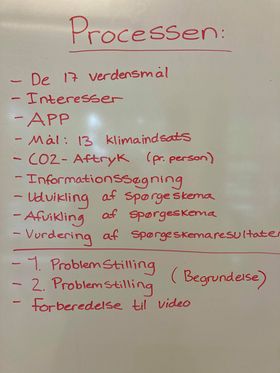 Processen:
- De 17 verdensmål
- Interesser
- APP
- Mål: 13 klimaindsats
- CO2-Aftryk (pr. person)
- Informationssøgning
- Udvikling af spørgeskema
- Afvikling af spørgeskema
- Vurdering af spørgeskemaresultater
- 1. Problemstilling
- 2. Problemstilling (Begrundelse)
- Forberedelse til video